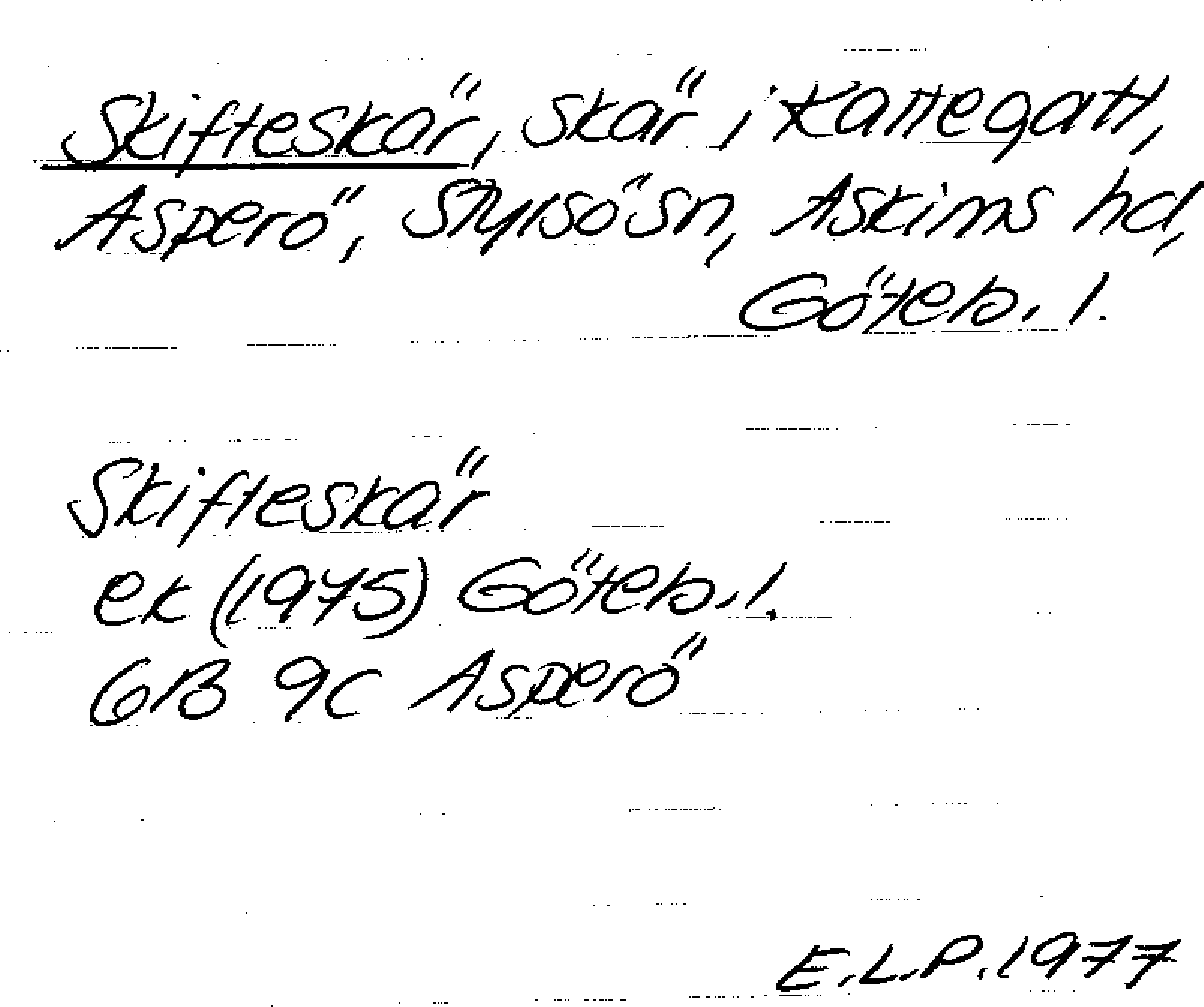 Skifteskär, skär i Kattegatt,
Asperö, Styrsö sn, Askims hd,
Göteb. l.
Skifteskär
ek (1975) Göteb. l.
6B 9c Asperö
E.L.P. 1977